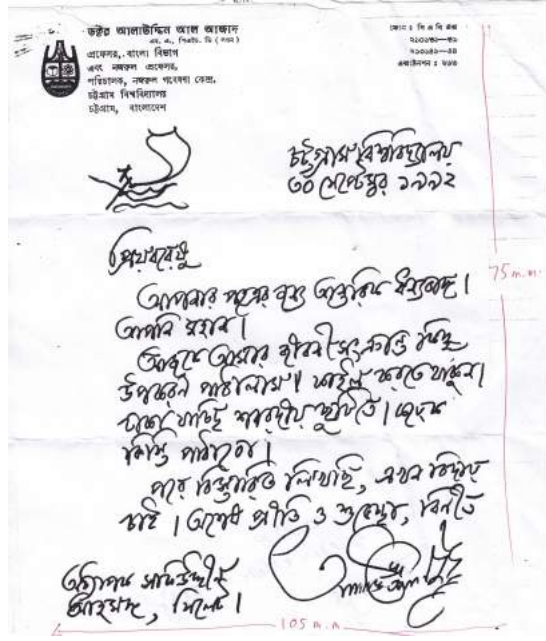 ডক্টর আলাউদ্দিন আল আজাদ
এম. এ., পিএইচ. ডি (লন্ডন)
প্রফেসর, বাংলা বিভাগ
এবং নজরুল প্রফেসর,
পরিচালক, নজরুল গবেষণা কেন্দ্র,
চট্টগ্রাম বিশ্ববিদ্যালয়
চট্টগ্রাম, বাংলাদেশ
ফোন : পি এ বি এক্স
চট্টগ্রাম বিশ্ববিদ্যালয়
৩০ সেপ্টেম্বর ১৯৯২
প্রিয়বরেষু
আপনার পত্রের জন্য আন্তরিক ধন্যবাদ।
আপনি মহান।
আজকে আমার জীবনী সংক্রান্ত কিছু
উপকরণ পাঠালাম। ফাইল করতে থাকুন।
ঢাকা যাচ্ছি শারদীয় ছুটিতে।
কিস্তি পাঠাবো।
পরে বিস্তারিত লিখছি, এখন বিদায়
চাই। অশেষ প্রীতি ও শুভেচ্ছা, বিনীত
অধ্যাপক
আহমদ, সিলেট।
75 m.m.
105 m.m